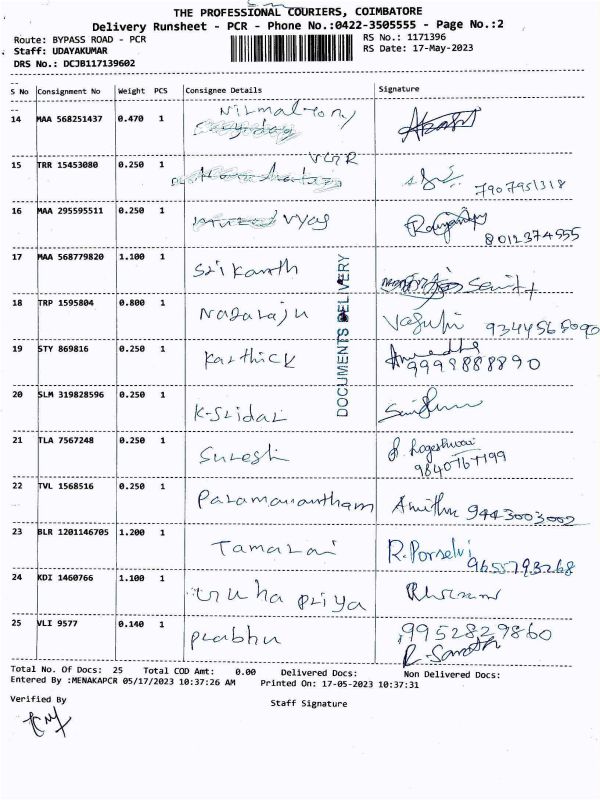 THE PROFESSIONAL COURIERS, COIMBATORE
Delivery Runsheet - PCR - Phone No.:0422-3505555 - Page No.:2
Route: BYPASS ROAD - PCR
RS No.: 1171396
Staff: UDAYAKUMAR
RS Date: 17-May-2023
DRS No.: DCJB117139602
S No Consignment No Weight PCS Consignee Details Signature
14 MAA 568251437 0.470 1 Nirmal Tony
15 TRR 15453080 0.250 1 VGR 7907951318
16 MAA 295595511 0.250 1 Vyas 8012374555
17 MAA 568779820 1.100 1 Srikanth
18 TRP 1595804 0.800 1 Nagaraju 9344565690
19 STY 869816 0.250 1 Karthick Anuradha
9999888890
20 SLM 319828596 0.250 1 K-Sridar
21 TLA 7567248 0.250 1 Suresh
9840767199
22 TVL 1568516 0.250 1 Paramanantham Amithu 9443003002
23 BLR 1201146705 1.200 1 Tamarai R.Porselvi
9655793268
24 KDI 1460766 1.100 1 Priya
25 VLI 9577 0.140 1 Prabhu 9952829860
DOCUMENTS DELIVERY
Total No. Of Docs: 25 Total COD Amt: 0.00 Delivered Docs: Non Delivered Docs:
Entered By :MENAKAPCR 05/17/2023 10:37:26 AM Printed On: 17-05-2023 10:37:31
Verified By
Staff Signature